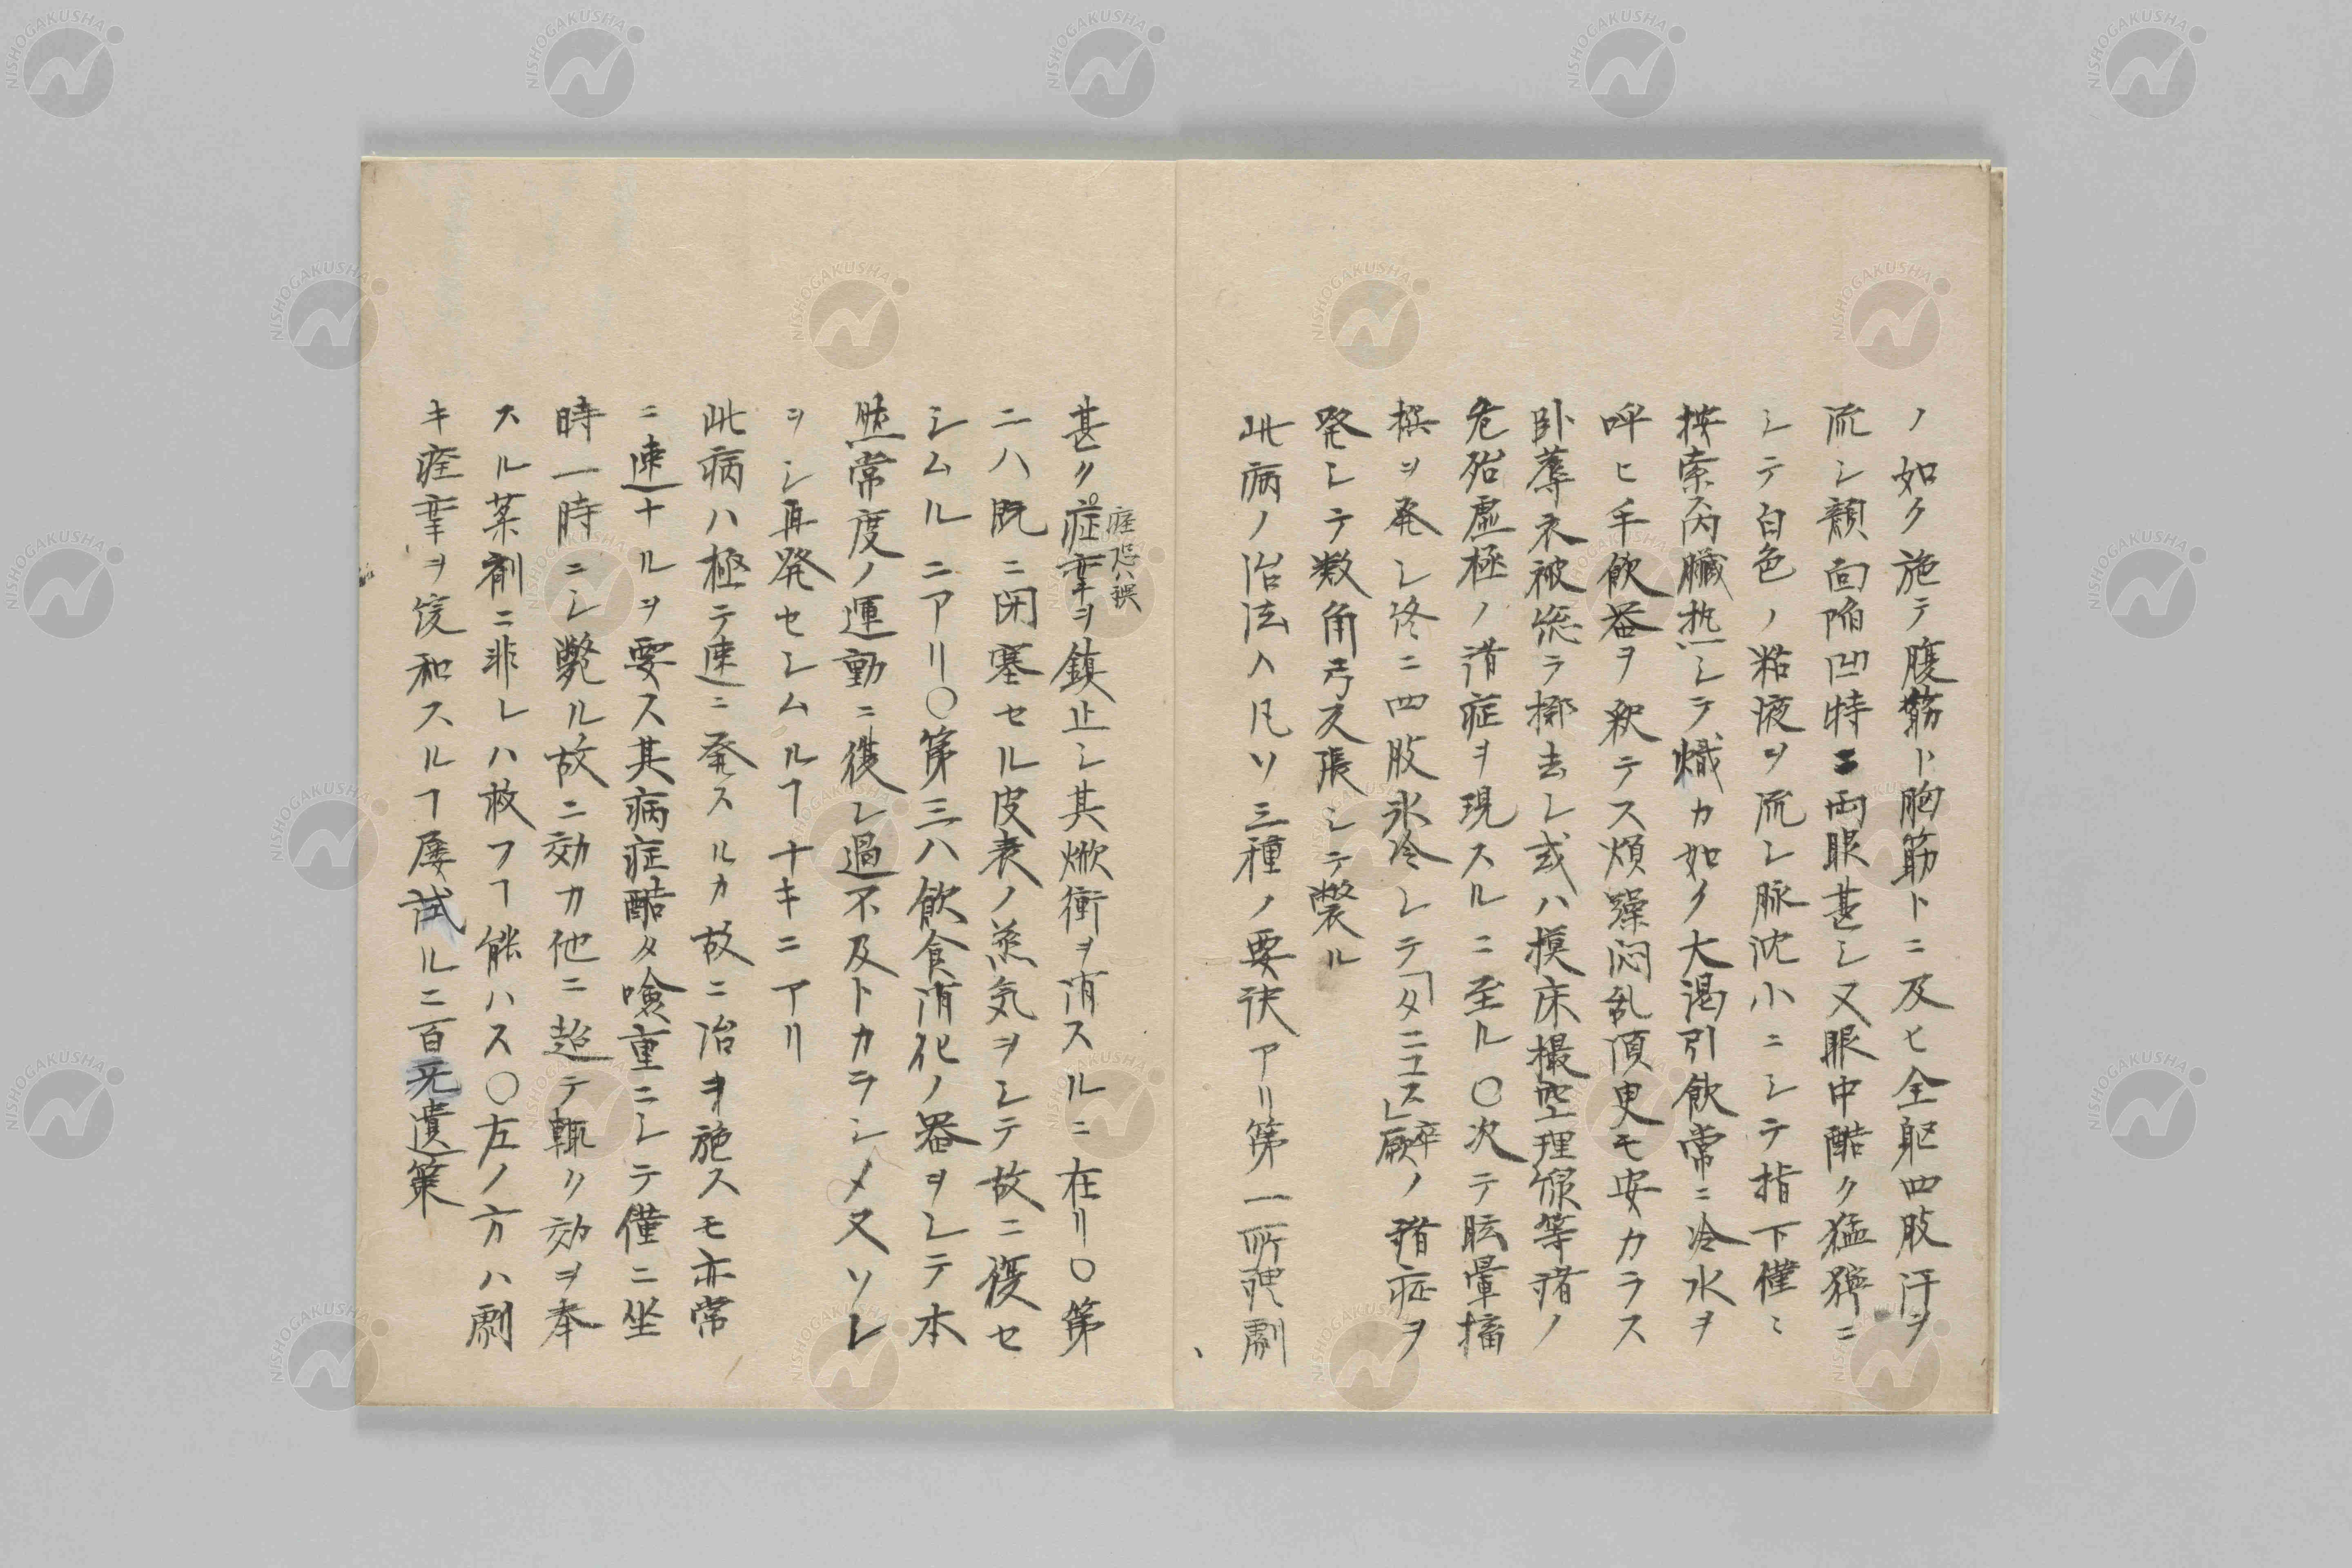 ノ如ク施テ腹筋ト胸筋トニ及ヒ全躯四肢汗ヲ
流シ顔面陥凹特ニ両眼甚シ又眼中酷ク猛獰ニ
シテ白色ノ粘液ヲ流シ脉沈小ニシテ指下僅ミ
按索ス内臓熱シテ熾カ如ク大渇引飲常ニ冷水ヲ
呼ヒ手飲器ヲ釈テス煩躁悶乱須臾モ安カラス
卧蓐衣被悉ラ擲去シ或ハ摸床撮空理線等諸ノ
危殆虚極ノ諸症ヲ現スルニ至ル〇次テ眩暈搐
搦ヲ発シ終ニ四肢氷冷シテ「タニユス」卒厥ノ諸症ヲ
発シテ数角弓反張シテ斃ル
此病ノ治法ハ凡ソ三種ノ要訣アリ第一所謂劇
甚ク症攣ヲ鎮止シ其焮衝ヲ消スルニ在リ〇第
痙恐ハ誤
二ハ既ニ閉塞セル皮表ノ蒸気ヲシテ故ニ復セ
シムルニアリ〇第三ハ飲食消化ノ器ヲシテ本
然常度ノ運動ニ復シ過不及トカラシメ又ソレ
ヲシ再発セシムルヿナキニアリ
此病ハ極テ速ニ発スルカ故ニ治ヲ施スモ亦常
ニ速ナルヲ要ス其病症酷タ嶮重ニシテ僅ニ坐
時一時ニシ斃ル故ニ効力他ニ超テ輙ク効ヲ奉
スル薬剤ニ非レハ救フヿ能ハス〇左ノ方ハ劇
キ痙攣ヲ緩和スルヿ屡試ルニ百无遺策
NISHOGAKUSHA